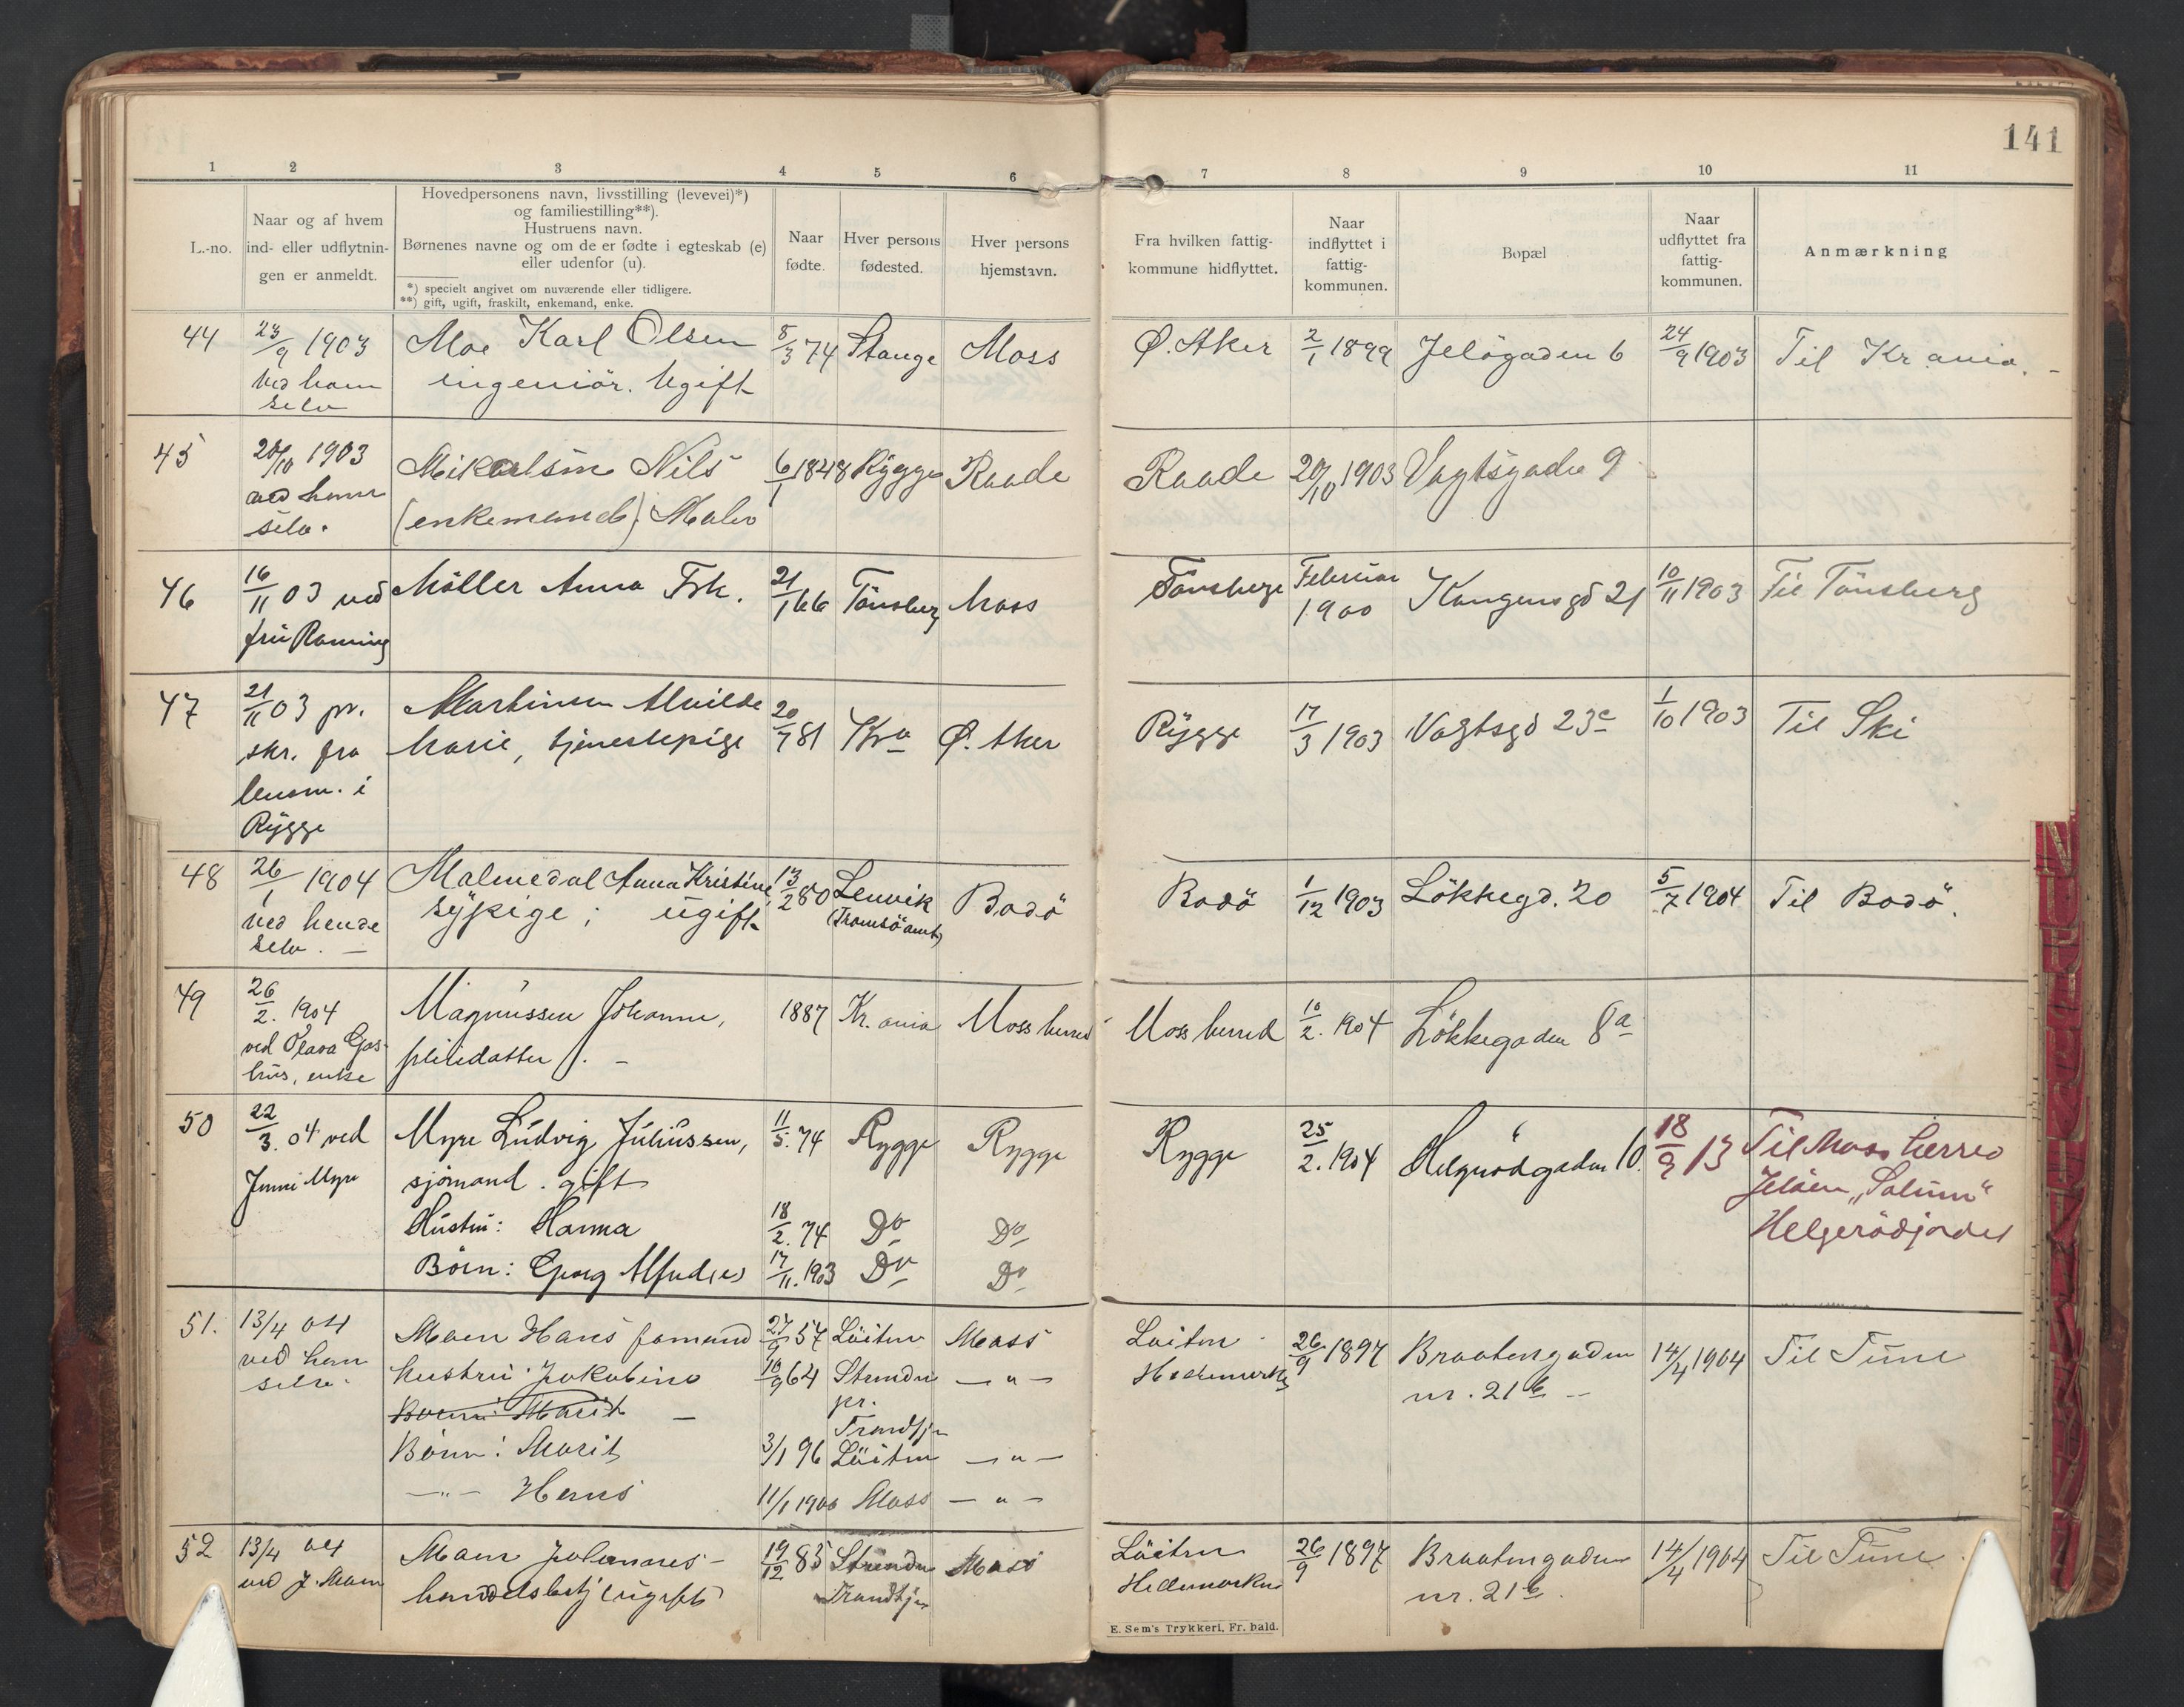 141
1 2 3 4 5 6 7 8 9 10 11
L.-no.
Naar og af hvem
ind- eller udflytnin-
gen er anmeldt.
Hovedpersonens navn, livsstilling (levevei)*)
og familiestilling**).
Hustruens navn.
Børnenes navne og om de er fødte i egteskab (e)
eller udenfor (u).
*) specielt angivet om nuværende eller tidligere.
**) gift, ugift, fraskilt, enkemand, enke.
Naar
fødte.
Hver persons
fødested.
Hver persons
hjemstavn.
Fra hvilken fattig-
kommune hidflyttet.
Naar
indflyttet i
fattig-
kommunen.
Bopæl
Naar
udflyttet fra
fattig-
kommunen.
Anmærkning
44 23/9 1903 Moe Karl Olsen 8/3 74 Stange Moss Ø. Aker 2/1 1899 Jelögaden 6 24/9 1903 Til Kr.ania. -
ved ham ingeniör. Ugift
selv
45 20/10 1903 Mikaelsen Nils 6/1 1848 Rygge Raade Raade 20/10 1903 Vogtsgaden 9
ved ham (enkemand) Maler
selv.
46 16/11 03 ved Möller Anna Frk. 21/1 66 Tönsberg Moss Tönsberg Februar 1900 Kongensgd 21 10/11 1903 Til Tönsberg
fru Ronning
47 21/11 03 pr. Martinsen Alvilde 20/7 81 Kra Ø. Aker Rygge 17/3 1903 Vogtsgd 23c 1/10 1903 Til Ski
skr. fra Marie, tjenestepige
lensm. i
Rygge
48 26/1 1904 Malmedal Anna Kristine, 13/2 80 Lenvik Bodö Bodö 1/12 1903 Lökkegd. 20 5/7 1904 Til Bodö.
ved hende sypige; ugift. (Tromsö amt)
selv. -
49 26/2. 1904 Magnussen Johanne, 1887 Kr.ania Moss herred Moss herred 10/2. 1904 Lökkegaden 8a
ved Olava Gas- pleiedatter. -
hus, enke
50 22/3. 04 ved Myre Ludvig Juliussen, 11/5. 74 Rygge Rygge Rygge 25/2. 1904 Helgerödgaden 10. 18/9 13 Til Moss herred
Jenni Myre sjömand. gift Jelöen "Solum"
Hustru: Hanna 18/2. 74 Do Do Helgerödjordet
Börn: Georg Alfred (e) 17/11. 1903 Do Do
51. 13/4 04 Moen Hans formand 27/9 57 Löiten Moss Löiten 26/9 1897 Braatengaden 14/4 1904 Til Tune
ved ham Hustru: Jakobine 10/9 64 Strinden — " — Hedemarken nr. 21b -
selv. Börn: Marit - pr.
Trondhjem
Börn: Marit 3/1 96 Löiten — " —
— " — Hans 11/1 1900 Moss — " —
52 13/4 04 Moen Johannes - 19/12 83 Strinden Moss Löiten 26/9 1897 Braatengaden 14/4 1904 Til Tune
ved J. Moen handelsbetj. ugift Trondhjem Hedemarken nr. 21b.
E. Sem's Trykkeri, Fr. hald.